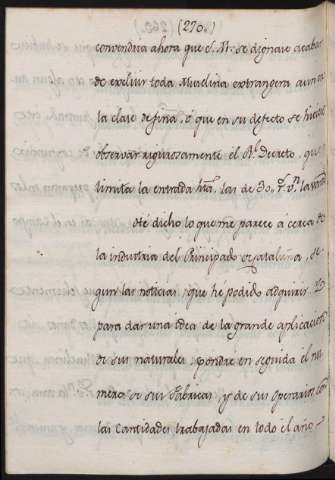 (270.)
convendria ahora que S. M. se dignase acabar
de excluir toda Muselina extrangera aun en
la clase de fina, ó que en su defecto se hiciese
observar rigurosamente el Rl. Decreto, que
limita la entrada hta. las de 30 rs. vn. la vara.
He dicho lo que me parece á cerca de
la industria del Principado de Cataluña, se-
gun las noticias que he podido adquirir. Y
para dar una idea de la grande aplicacion
de sus naturales pondré en seguida el nu-
mero de sus Fabricas, y de sus operarios, con
las Cantidades trabajadas en todo el año